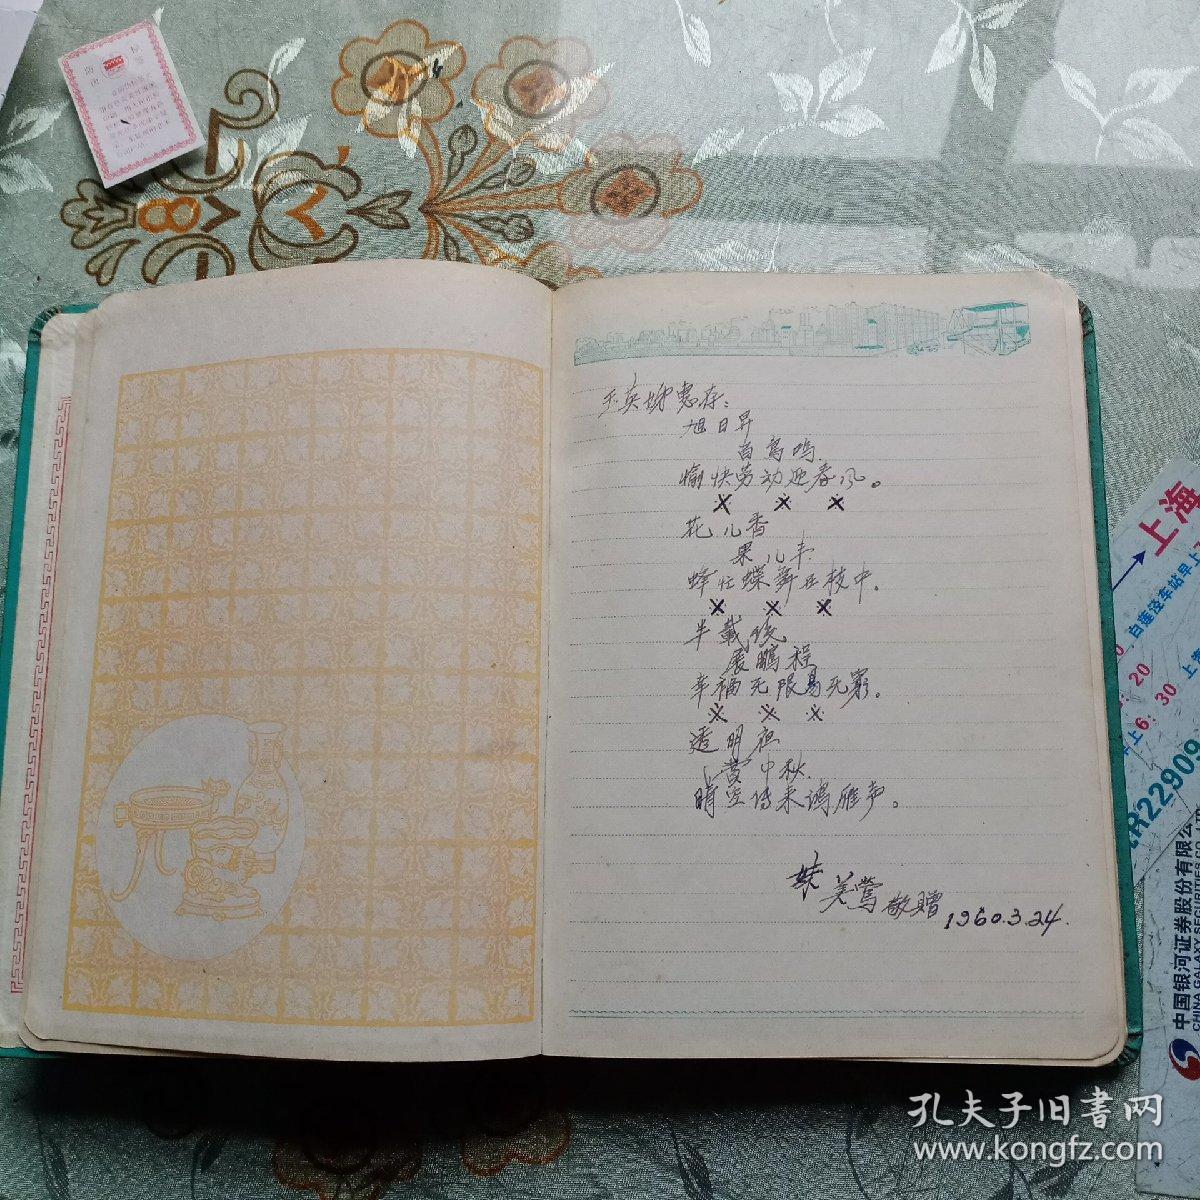 玉英姊惠存：
旭日昇
百鸟鸣
愉快劳动迎春风。
× × ×
花儿香
果儿丰
蜂忙蝶舞丘枝中.
× × ×
半載後
展鵬程
幸福无限易无窮。
× × ×
透明夜
中秋.
晴空传来鴻雁声。
妹 美鶯 敬赠 1960.3.24.
上海
白莲泾车站早上
20
30
上6:
R22909
中国银河证券股份有限公
CHINA GALAXY SECURITIES CO.
孔夫子旧書网
www.kongfz.com